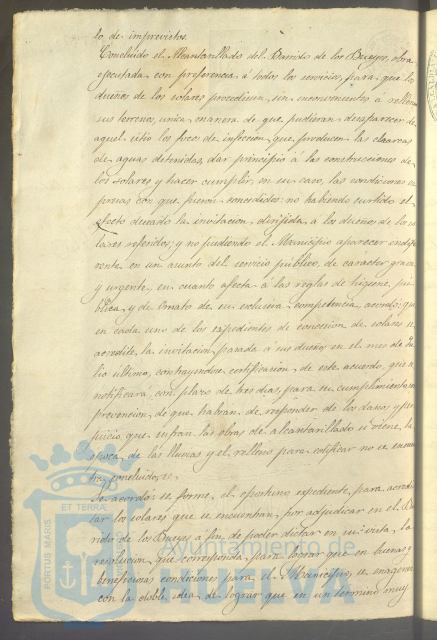 lo de imprevistos.
Concluido el Alcantarillado del Barrido de los Bueyes, obra
ejecutada con preferencia á todos los servicios, para que los
dueños de los solares procediesen, sin inconvenientes á rellenar
sus terrenos, única manera de que pudieran desaparecer de
aquel sitio los focos de infeccion, que producen las charcas
de aguas detenidas, dar principio á las construcciones de
los solares y hacer cumplir, en su caso, las condiciones
con que fueron concedidos: no habiendo surtido el
efecto deseado la invitacion dirijida á los dueños de los so
lares referidos; y no pudiendo el Municipio aparecer indife
rente en un asunto del servicio público, de caracter grave
y urgente, en cuanto afecta á las reglas de higiene pú
blica, y de Ornato de su exclusiva competencia, acordó: que
en cada uno de los expedientes de concesion de solares se
acredite, la invitacion pasada á sus dueños en el mes de Ju
lio último, contrayendose certificacion de este acuerdo, que se
notificará, con plazo de tres dias, para su cumplimiento,
prevencion, de que habran de responder de los daños y per
juicios que sufran las obras de alcantarillado si viene la
época de las lluvias y el relleno para edificar no se encuen
tra concluido.
Se acordó: se forme el oportuno expediente, para acredi
tar los solares que se encuentran por adjudicar en el Ba
rrido de los Bueyes á fin de poder dictar en su vista, la
resolucion que corresponda, para lograr que en buenas y
beneficiosas condiciones para el Municipio, se enagenen
con la doble idea de lograr que en un termino muy
PORTUS MARIS
ET TERRA
Ayuntamiento de
HUELVA